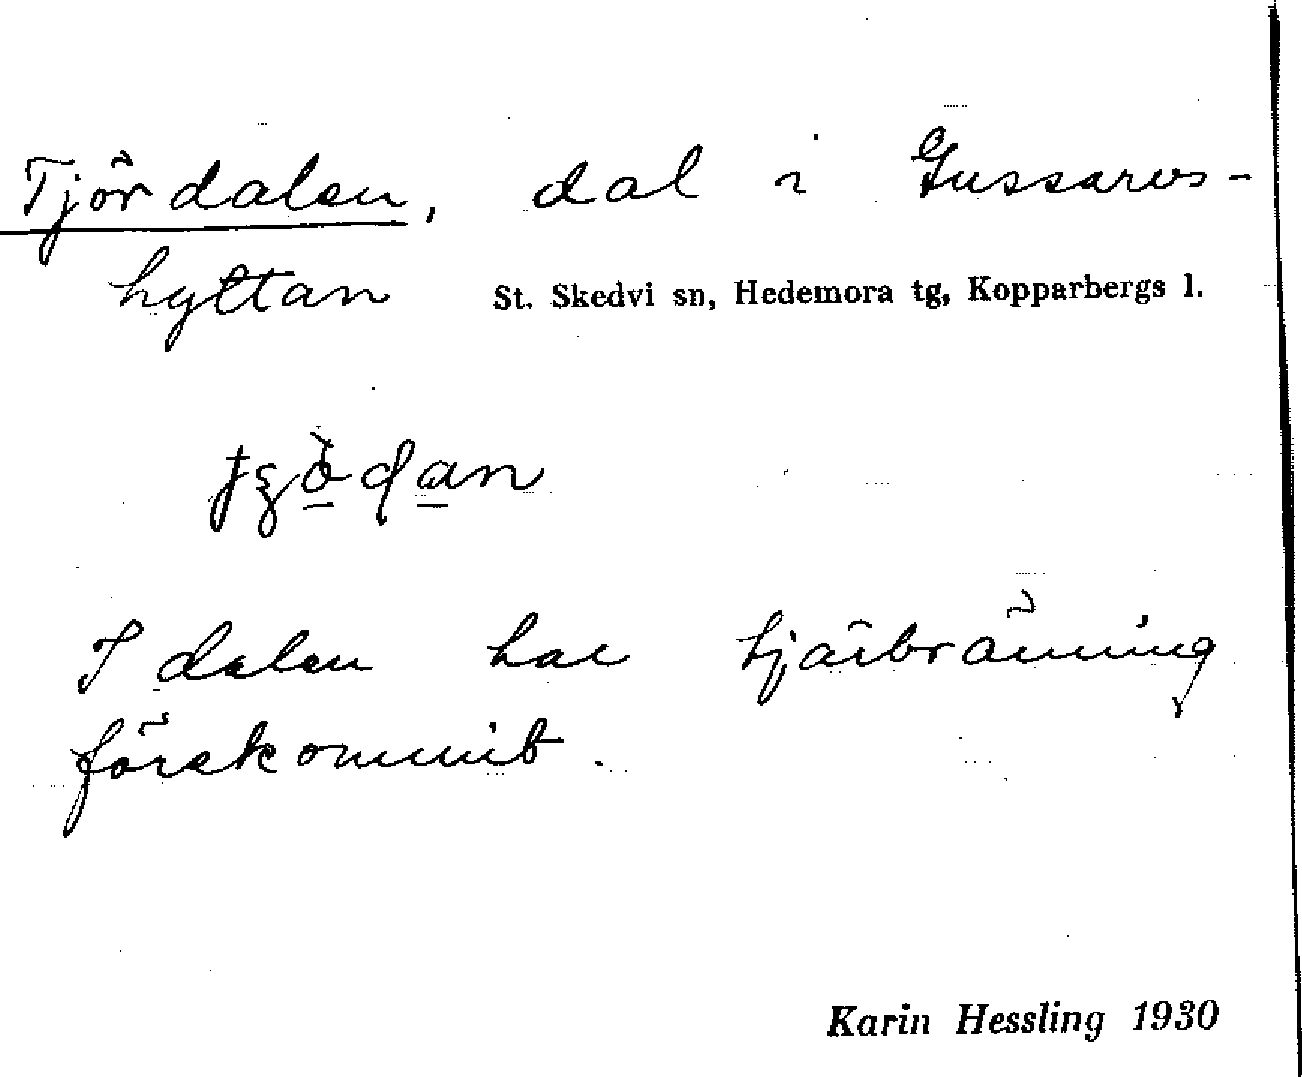 Tjördalen, dal i Gussarvs-
hyttan St. Skedvi sn, Hedemora tg, Kopparbergs l.
I dalen har tjärbränning
förekommit.
Karin Hessling 1930